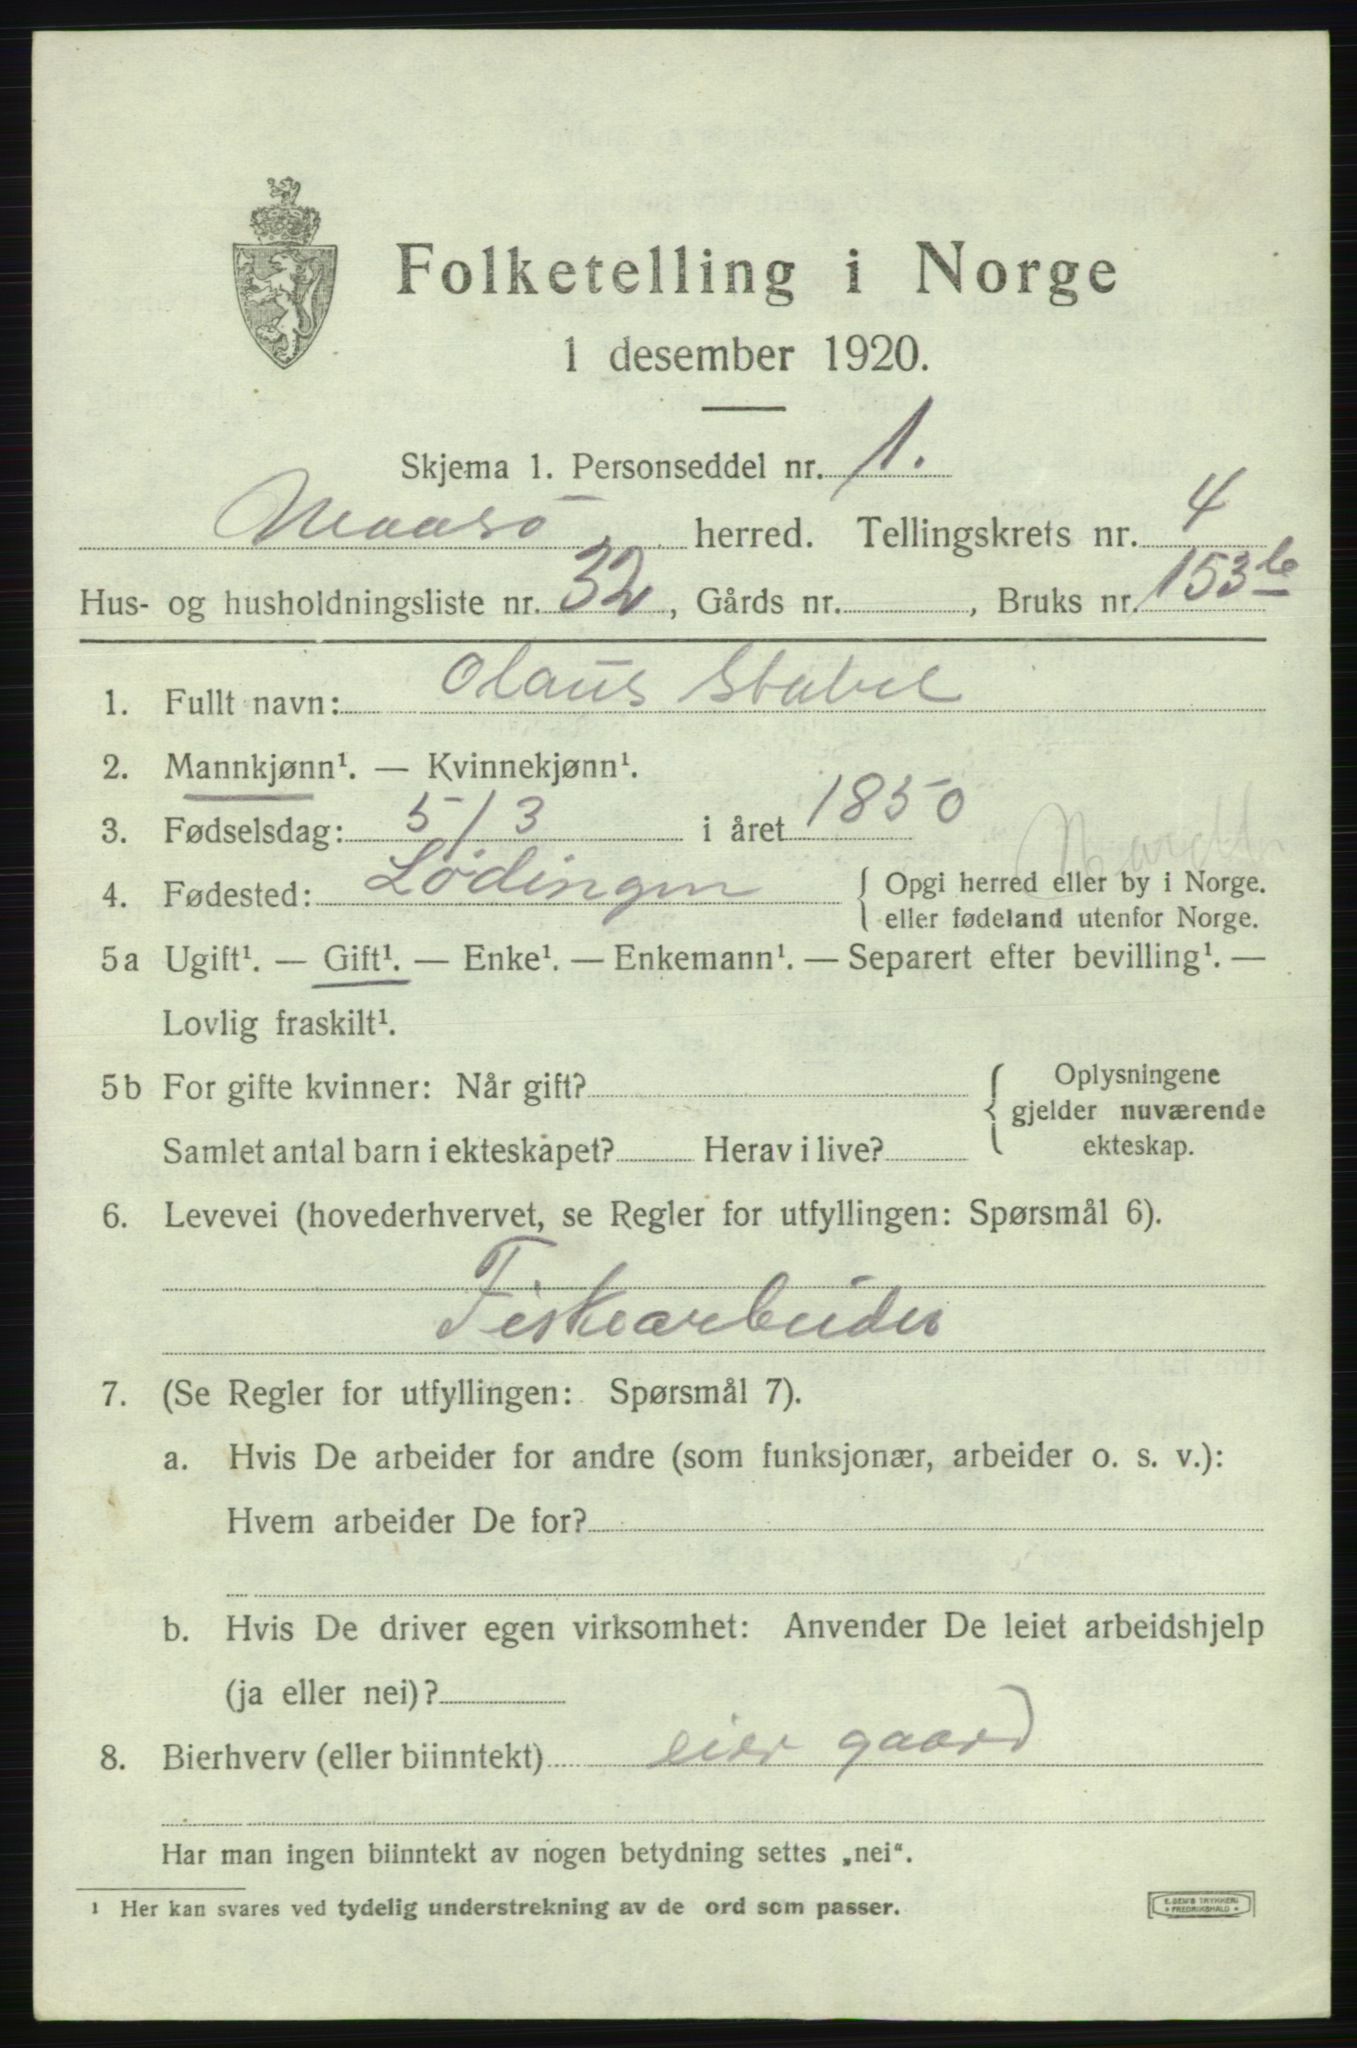 Folketelling i Norge
1 desember 1920.
Skjema 1. Personseddel nr. 1.
Maasö herred. Tellingskrets nr. 4
Hus- og husholdningsliste nr. 32, Gårds nr. , Bruks nr. 153b
1. Fullt navn: Olaus Stabel
2. Mannkjønn¹. — Kvinnekjønn¹.
3. Fødselsdag: 5/3 i året 1850
4. Fødested: Lödingen { Opgi herred eller by i Norge.
eller fødeland utenfor Norge.
5a Ugift¹. — Gift¹. — Enke¹. — Enkemann¹. — Separert efter bevilling¹. —
Lovlig fraskilt¹.
5b For gifte kvinner: Når gift? { Oplysningene
gjelder nuværende
Samlet antal barn i ekteskapet? Herav i live? ekteskap.
6. Levevei (hovederhvervet, se Regler for utfyllingen: Spørsmål 6).
Fiskearbeider
7. (Se Regler for utfyllingen: Spørsmål 7).
a. Hvis De arbeider for andre (som funksjonær, arbeider o. s. v.):
Hvem arbeider De for?
b. Hvis De driver egen virksomhet: Anvender De leiet arbeidshjelp
(ja eller nei)?
8. Bierhverv (eller biinntekt) eier gaard
Har man ingen biinntekt av nogen betydning settes „nei“.
¹ Her kan svares ved tydelig understrekning av de ord som passer.
E. SEM'S TRYKKERI
FREDRIKSHALD